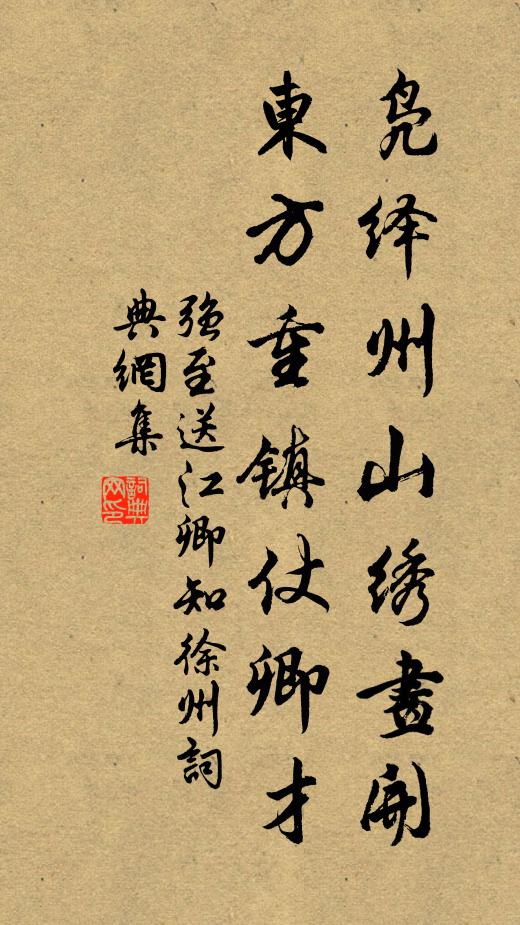 凫绎州山绣畫開
東方重镇仗卿才
强至送江卿知徐州詞
典網集
詞典網印